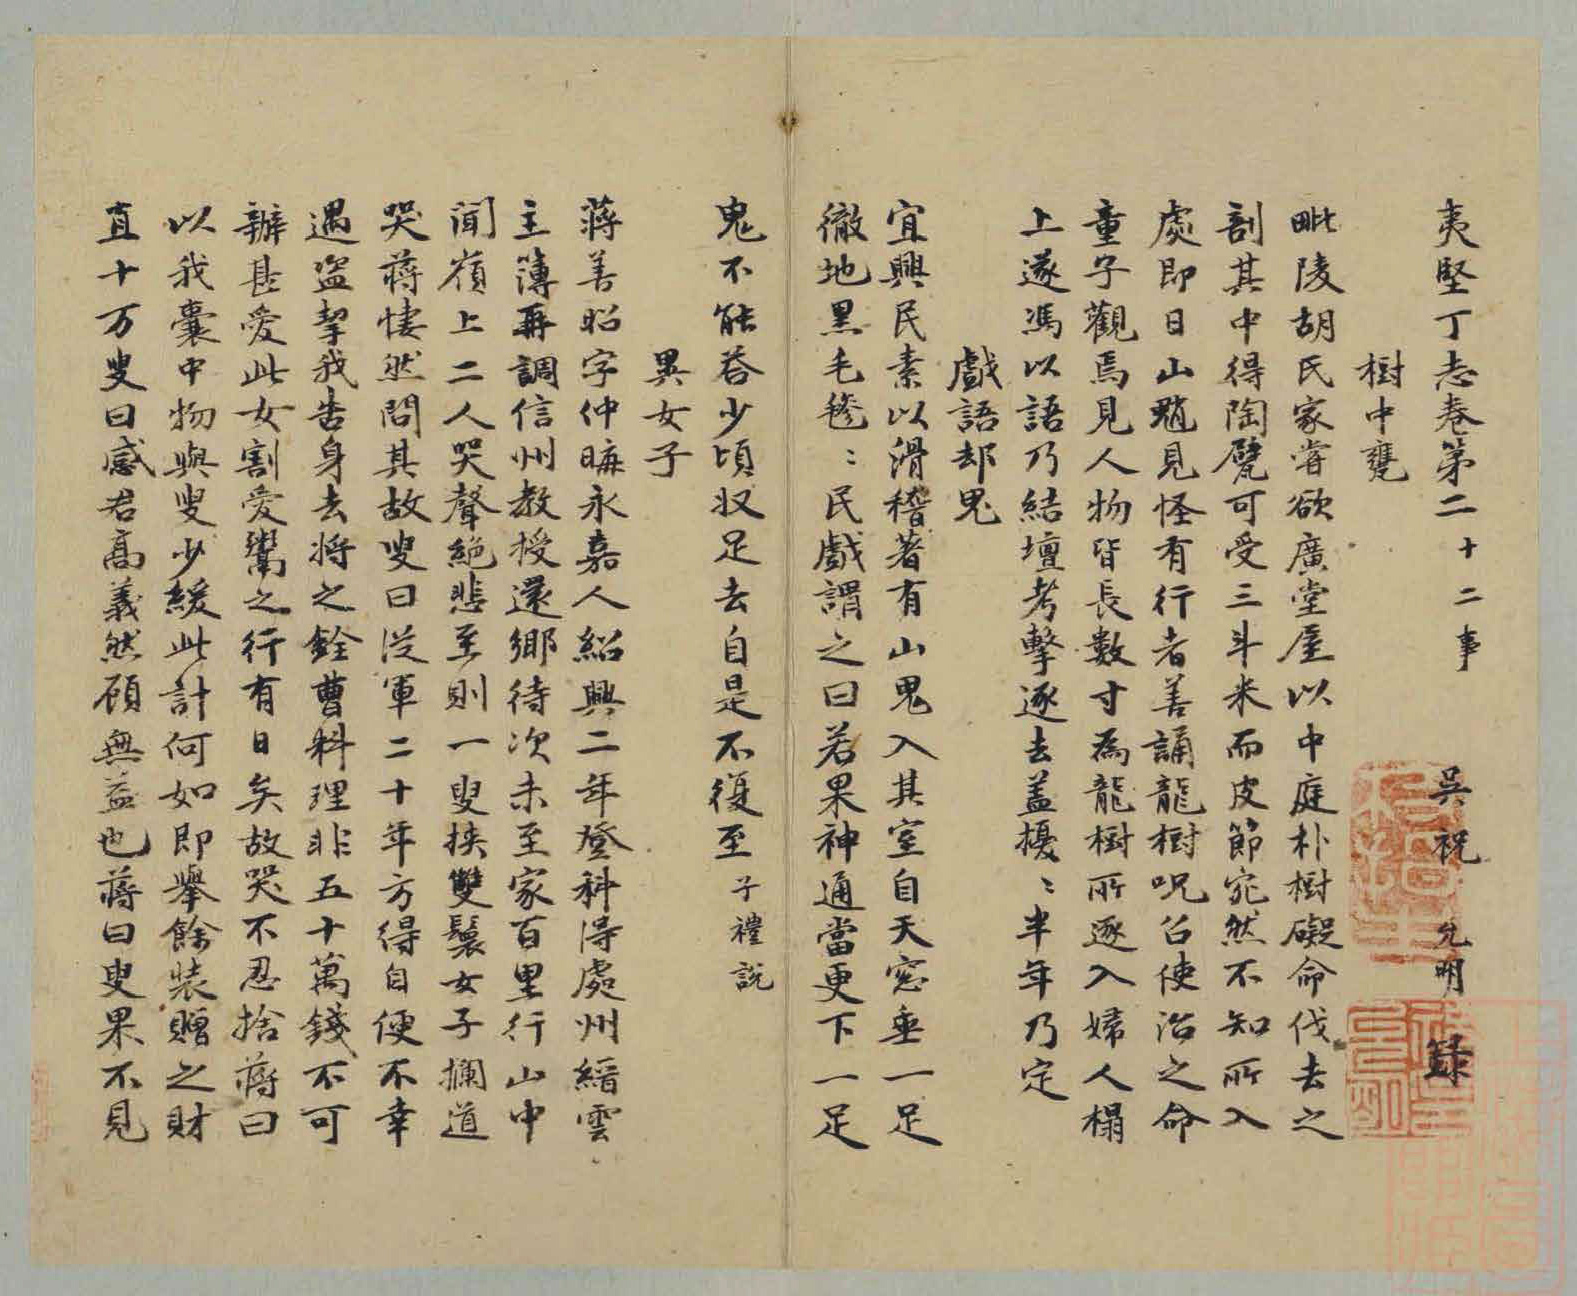 夷堅丁志卷第二十二事 吳祝允明錄
樹中甕
毗陵胡氏家嘗欲廣堂屋以中庭朴樹礙命伐去之
剖其中得陶甓可受三斗米而皮節宛然不知所入
處即日山魈見怪有行者善誦龍樹呪召使治之命
童子觀焉見人物皆長數寸為龍樹所逐入婦人榻
上遂馮以語乃結壇考擊逐去盖擾〻半年乃定
戲語却鬼
宜興民素以滑稽著有山鬼入其室自天窓垂一足
徹地黑毛毵〻民戲謂之曰若果神通當更下一足
鬼不能荅少頃収足去自是不復至 子禮說
異女子
蔣善昭字仲晦永嘉人紹興二年登科得處州縉雲
主簿再調信州教授還鄉待次未至家百里行山中
聞嶺上二人哭聲絕悲至則一叟挾雙鬟女子攔道
哭蔣悽然問其故叟曰從軍二十年方得自便不幸
遇盜挈我告身去將之銓曹料理非五十萬錢不可
辦甚愛此女割愛鬻之行有日矣故哭不忍捨蔣曰
以我囊中物與叟少緩此計何如即舉餘裝贈之財
直十万叟曰感君高義然顧無益也蔣曰叟果不見